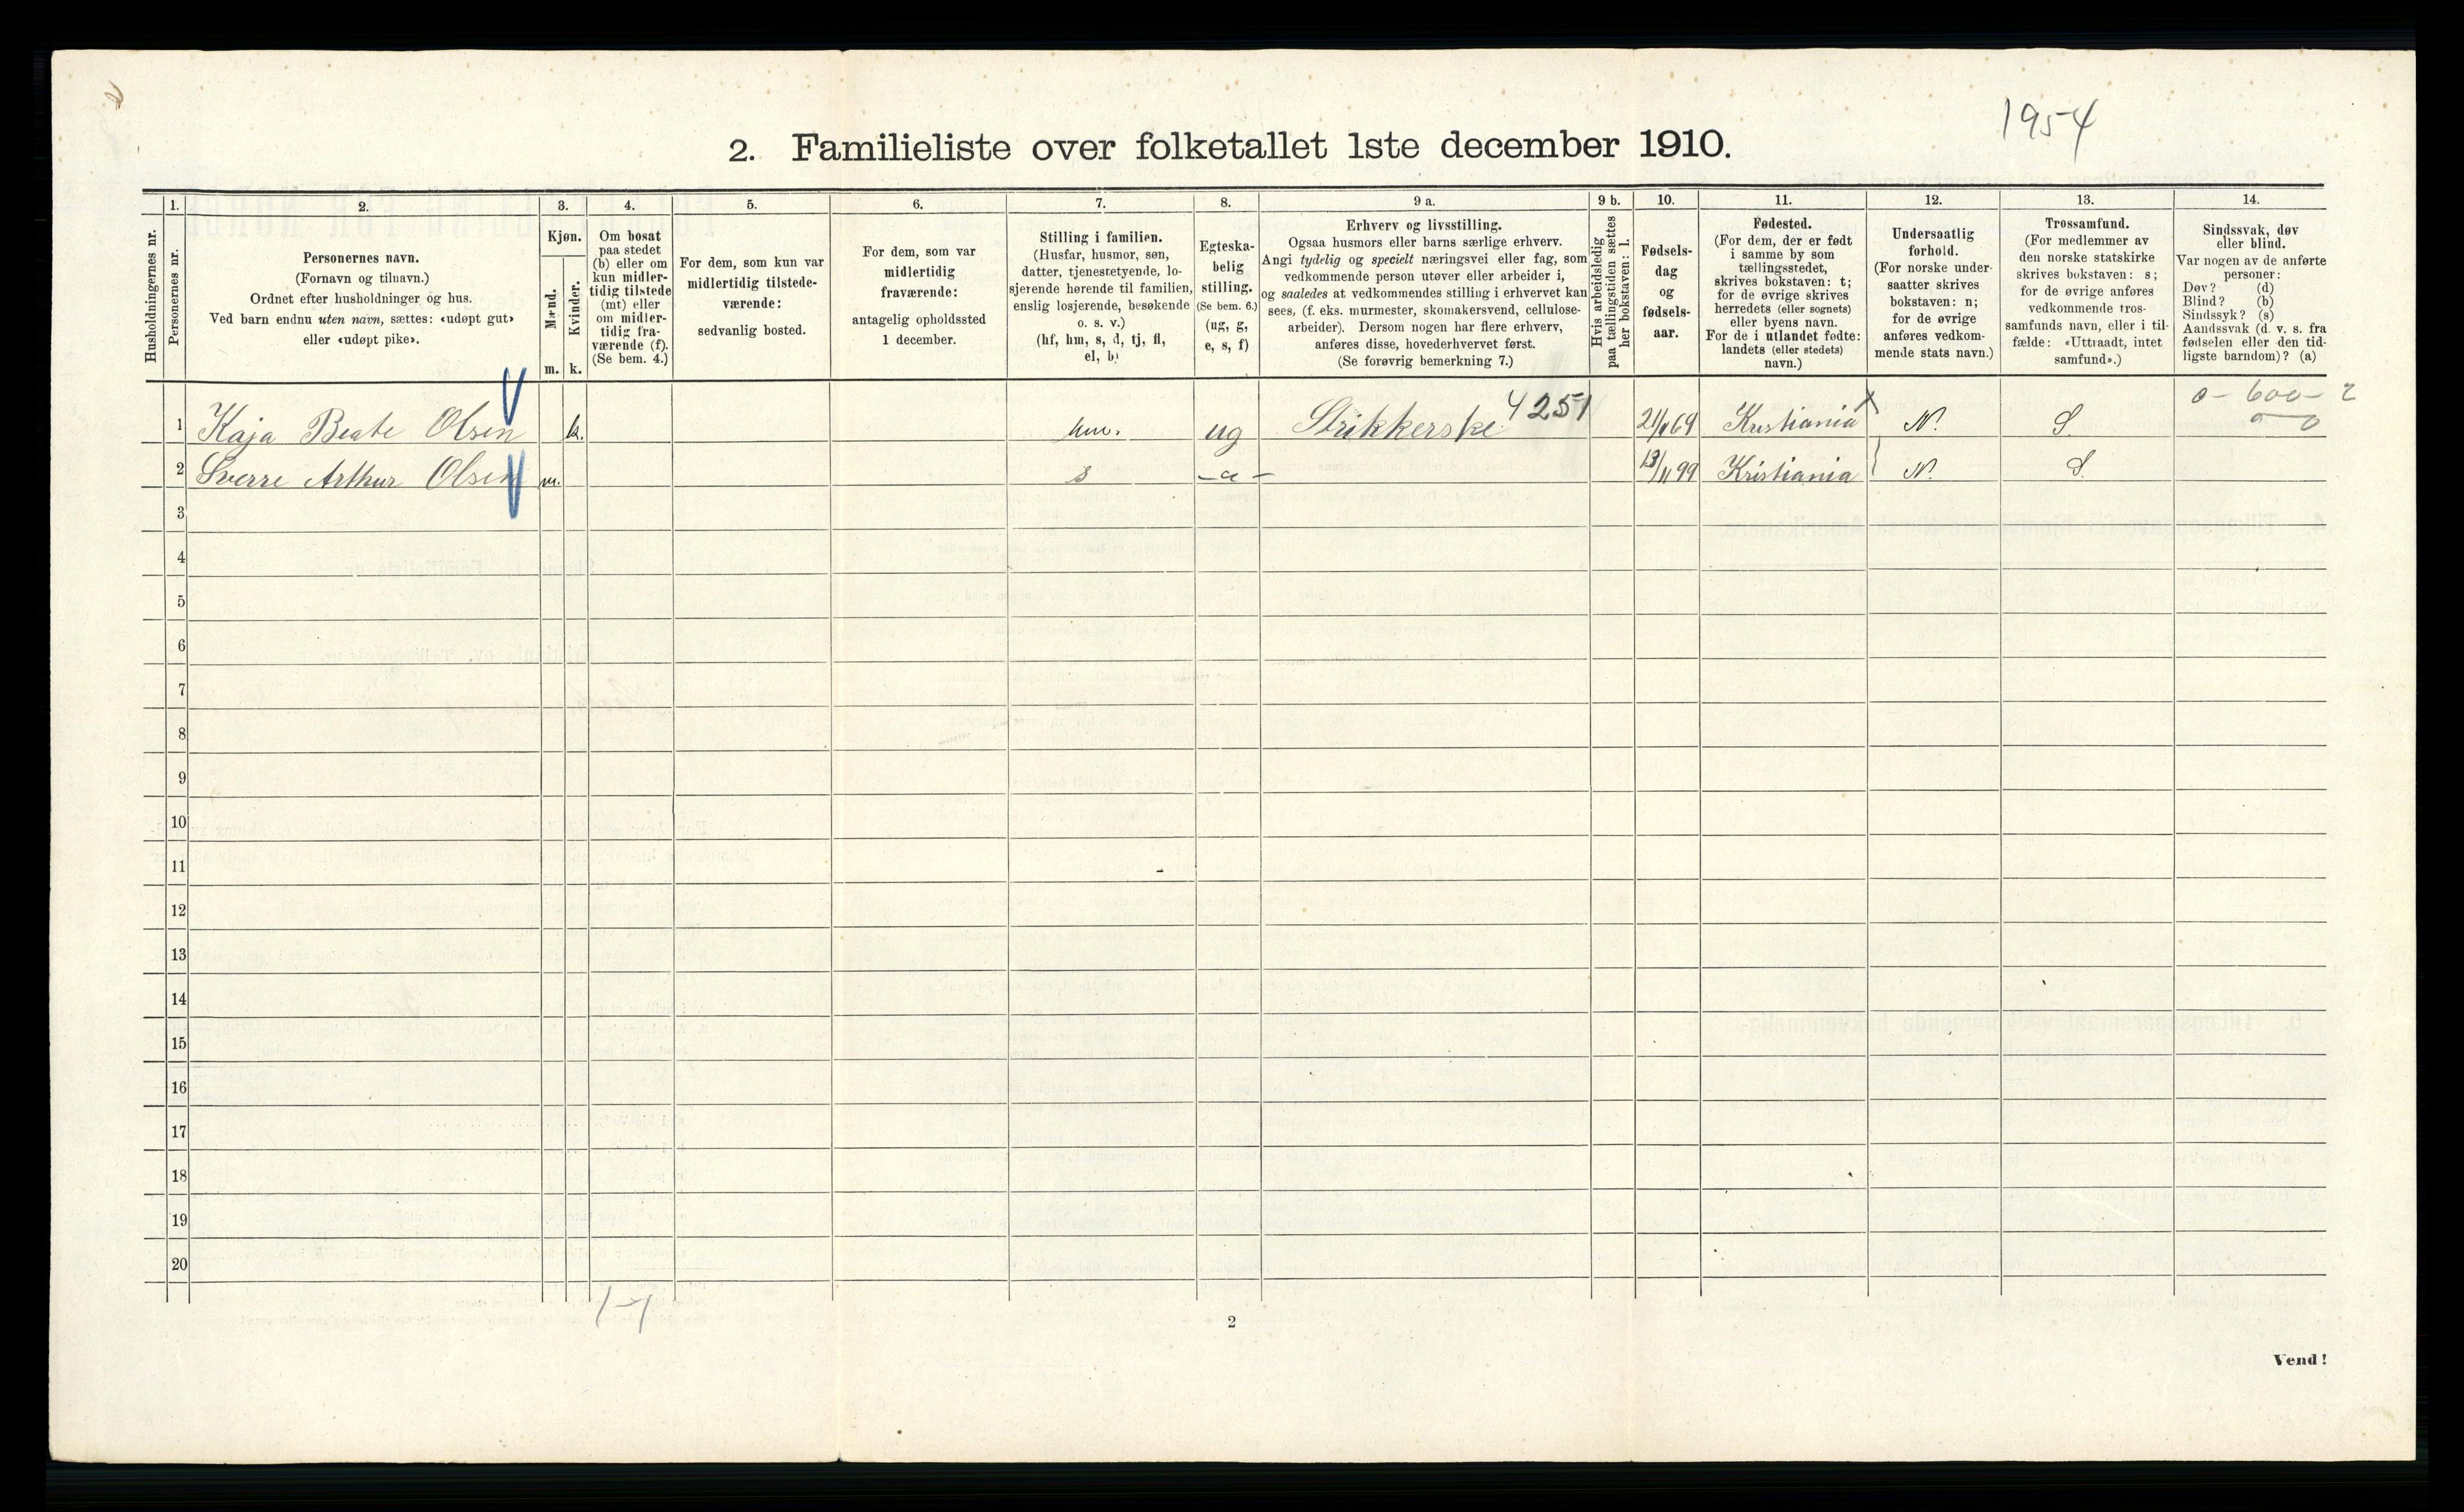 1954
2. Familieliste over folketallet 1ste december 1910.
Husholdningernes nr.
1.
Personernes nr.
2.
Personernes navn.
(Fornavn og tilnavn.)
Ordnet efter husholdninger og hus.
Ved barn endnu uten navn, sættes: «udøpt gut»
eller «udøpt pike».
3.
Kjøn.
Mænd.
m.
Kvinder.
k.
4.
Om bosat
paa stedet
(b) eller om
kun midler-
tidig tilstede
(mt) eller
om midler-
tidig fra-
værende (f).
(Se bem. 4.)
5.
For dem, som kun var
midlertidig tilstede-
værende:
sedvanlig bosted.
6.
For dem, som var
midlertidig
fraværende:
antagelig opholdssted
1 december.
7.
Stilling i familien.
(Husfar, husmor, søn,
datter, tjenestetyende, lo-
sjerende hørende til familien,
enslig losjerende, besøkende
o. s. v.)
(hf, hm, s, d, tj, fl,
el, b)
8.
Egteska-
belig
stilling.
(Se bem. 6.)
(ug, g,
e, s, f)
9 a.
Erhverv og livsstilling.
Ogsaa husmors eller barns særlige erhverv.
Angi tydelig og specielt næringsvei eller fag, som
vedkommende person utøver eller arbeider i,
og saaledes at vedkommendes stilling i erhvervet kan
sees, (f. eks. murmester, skomakersvend, cellulose-
arbeider). Dersom nogen har flere erhverv,
anføres disse, hovederhvervet først.
(Se forøvrig bemerkning 7.)
9 b.
Hvis arbeidsledig
paa tællingstiden sættes
her bokstaven: l.
10.
Fødsels-
dag
og
fødsels-
aar.
11.
Fødested.
(For dem, der er født
i samme by som
tællingsstedet,
skrives bokstaven: t;
for de øvrige skrives
herredets (eller sognets)
eller byens navn.
For de i utlandet fødte:
landets (eller stedets)
navn.)
12.
Undersaatlig
forhold.
(For norske under-
saatter skrives
bokstaven: n;
for de øvrige
anføres vedkom-
mende stats navn.)
13.
Trossamfund.
(For medlemmer av
den norske statskirke
skrives bokstaven: s;
for de øvrige anføres
vedkommende tros-
samfunds navn, eller i til-
fælde: «Uttraadt, intet
samfund».)
14.
Sindssvak, døv
eller blind.
Var nogen av de anførte
personer:
Døv? (d)
Blind? (b)
Sindssyk? (s)
Aandssvak (d. v. s. fra
fødselen eller den tid-
ligste barndom)? (a)
0 - 600 - 2
0 0
1 Kaja Beate Olsen k. hm. ug Strikkerske 4251 21/11 69 Kristiania x N. S.
2 Sverre Arthur Olsen m. s - a - 13/11 99 Kristiania N. S.
3
4
5
6
7
8
9
10
11
12
13
14
15
16
17
18
19
20
1-1
2
Vend!